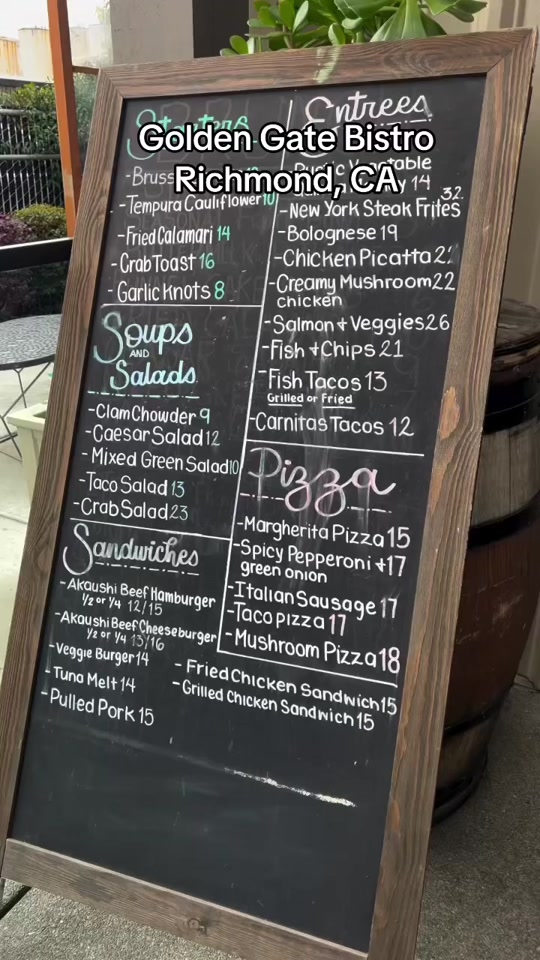 Golden Gate Bistro
Richmond, CA
Starters
-Tempura Cauliflower 10
-Fried Calamari 14
-Crab Toast 16
-Garlic Knots 8
Soups
AND
Salads
-Clam Chowder 9
-Caesar Salad 12
-Mixed Green Salad 10
-Taco Salad 13
-Crab Salad 23
Sandwiches
-Akaushi Beef Hamburger
1/2 or 1/4 12/15
-Akaushi Beef Cheeseburger
1/2 or 1/4 13/16
-Veggie Burger 14
-Tuna Melt 14
-Pulled Pork 15
-Fried Chicken Sandwich 15
-Grilled Chicken Sandwich 15
Entrees
Vegetable
14
-New York Steak Frites 32
-Bolognese 19
-Chicken Picatta
-Creamy Mushroom 22
chicken
-Salmon + Veggies 26
-Fish + Chips 21
-Fish Tacos 13
Grilled or Fried
-Carnitas Tacos 12
Pizza
-Margherita Pizza 15
-Spicy Pepperoni + 17
green onion
-Italian Sausage 17
-Taco pizza 17
-Mushroom Pizza 18